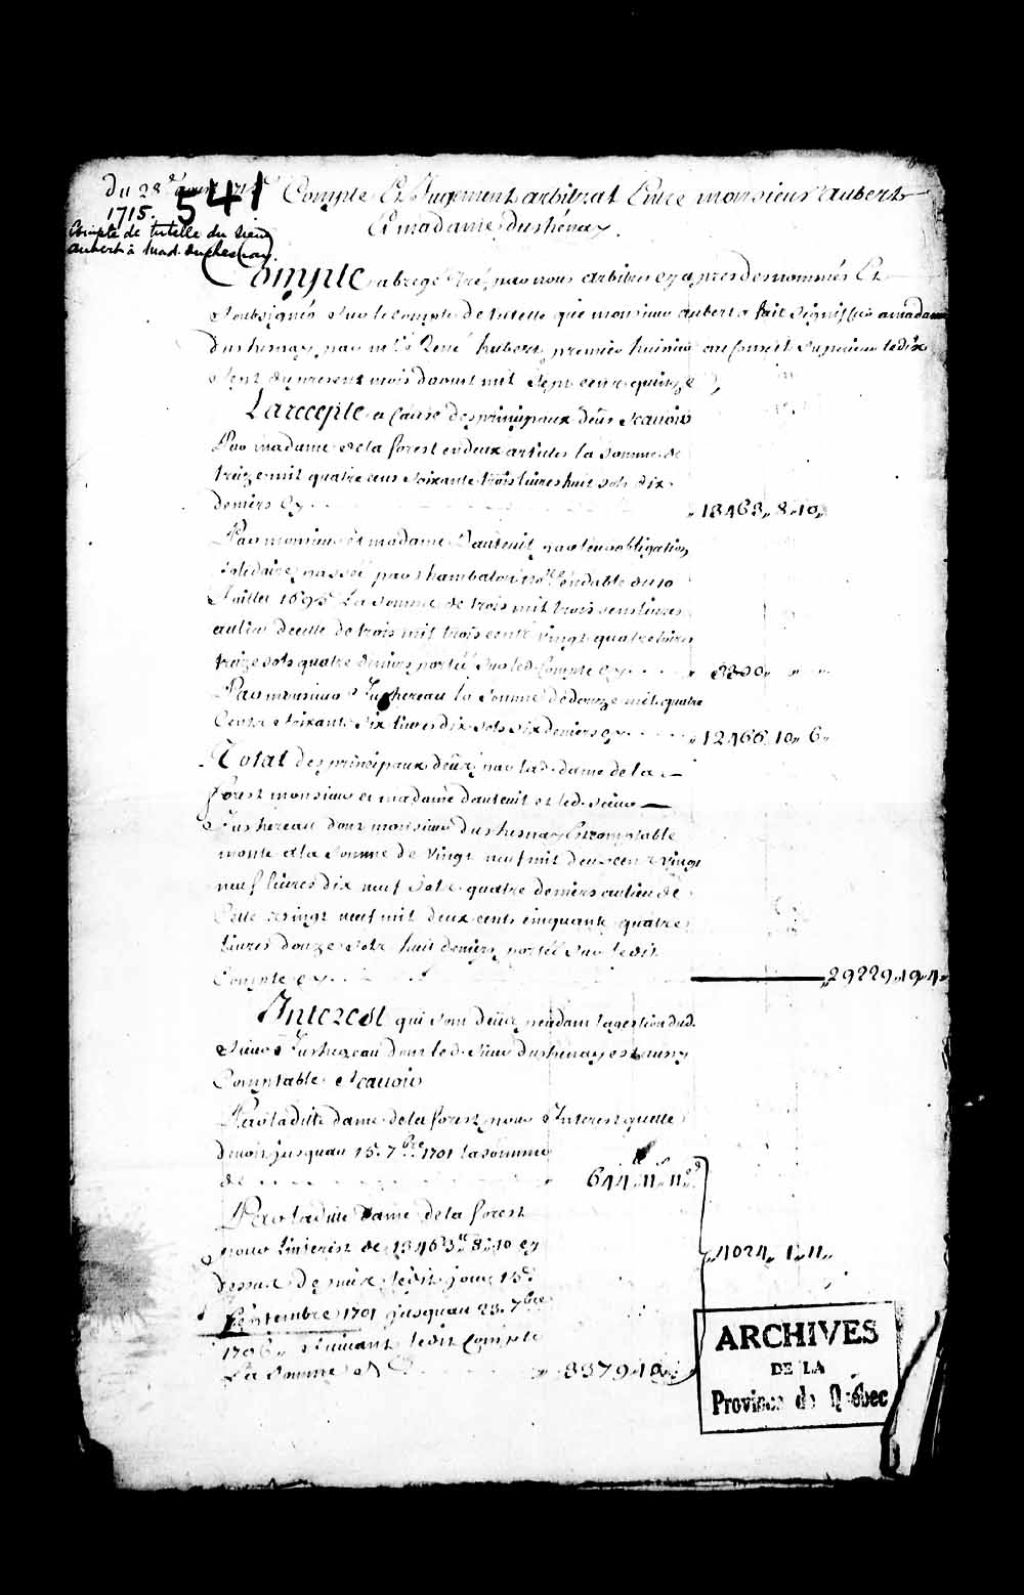 Du 28e aoust 1715
1715. 541
Compte de tutelle du Sieur
aubert à mad. duchesnay.
Compte Et Jugement arbitral Entre monsieur aubert
Et madame dushénay.
Compte abregé tiré par nous arbitres cy apres denommés Et
Soubsignés Sur le compte de tutelle que monsieur aubert a fait Signiffier a madame
dushesnay par me René hubert premier huissier au conseil Superieur le dix
Sept du present mois daoust mil Sept cent quinze
La recepte a cause des principaux deüs Scauoir
Par madame de la forest en deux articles la Somme de
treize mil quatre cens Soixante trois liures huit Sols dix
deniers Cy 13463,, 8,, 10,,
Par monsieur et madame Dauteuil par leur obligation
Solidaire passée par Chambalon nore en datte du 10
Juillet 1695 La Somme de trois mil trois cens liures
aulieu de celle de trois mil trois cents vingt quatre liures
treize Sols quatre deniers portée Sur led. Compte Cy 3300,,
Par monsieur Jushereau la Somme de douze mil quatre
Cents Soixante Six liures dix Sols Six deniers cy 12466,, 10,, 6,,
Total des principaux deües par lad. dame de la
forest monsieur et madame dauteuil et led. Sieur
Jushereau dont monsieur dushesnay Est comptable
monte a la Somme de vingt neuf mil deux cent vingt
neuf liures dix neuf Sols quatre deniers aulieu de
Celle de vingt neuf mil deux cents cinquante quatre
liures douze Sols huit deniers portée Sur ledit
Compte cy 29229,, 19,, 4,,
Interest qui Sont deües pendant la gestion dud.
Sieur Jushereau dont led. Sieur dushenay est aussy
Comptable Scauoir
Par laditte dame de la forest pour Interest quelle
deuoit jusquau 15. 7bre 1701 la Somme
de 644ll 11s 11d
Par laditte dame de la forest
pour linterest de 13463ll 8,, 10 cy
dessus depuis ledit jour 15e
Septembre 1701 jusquau 23. 7bre
1706,, Suiuant ledit Compte
La Somme de 3379,, 10,,
4024,, 1,, 11,,
ARCHIVES
DE LA
Province de Québec